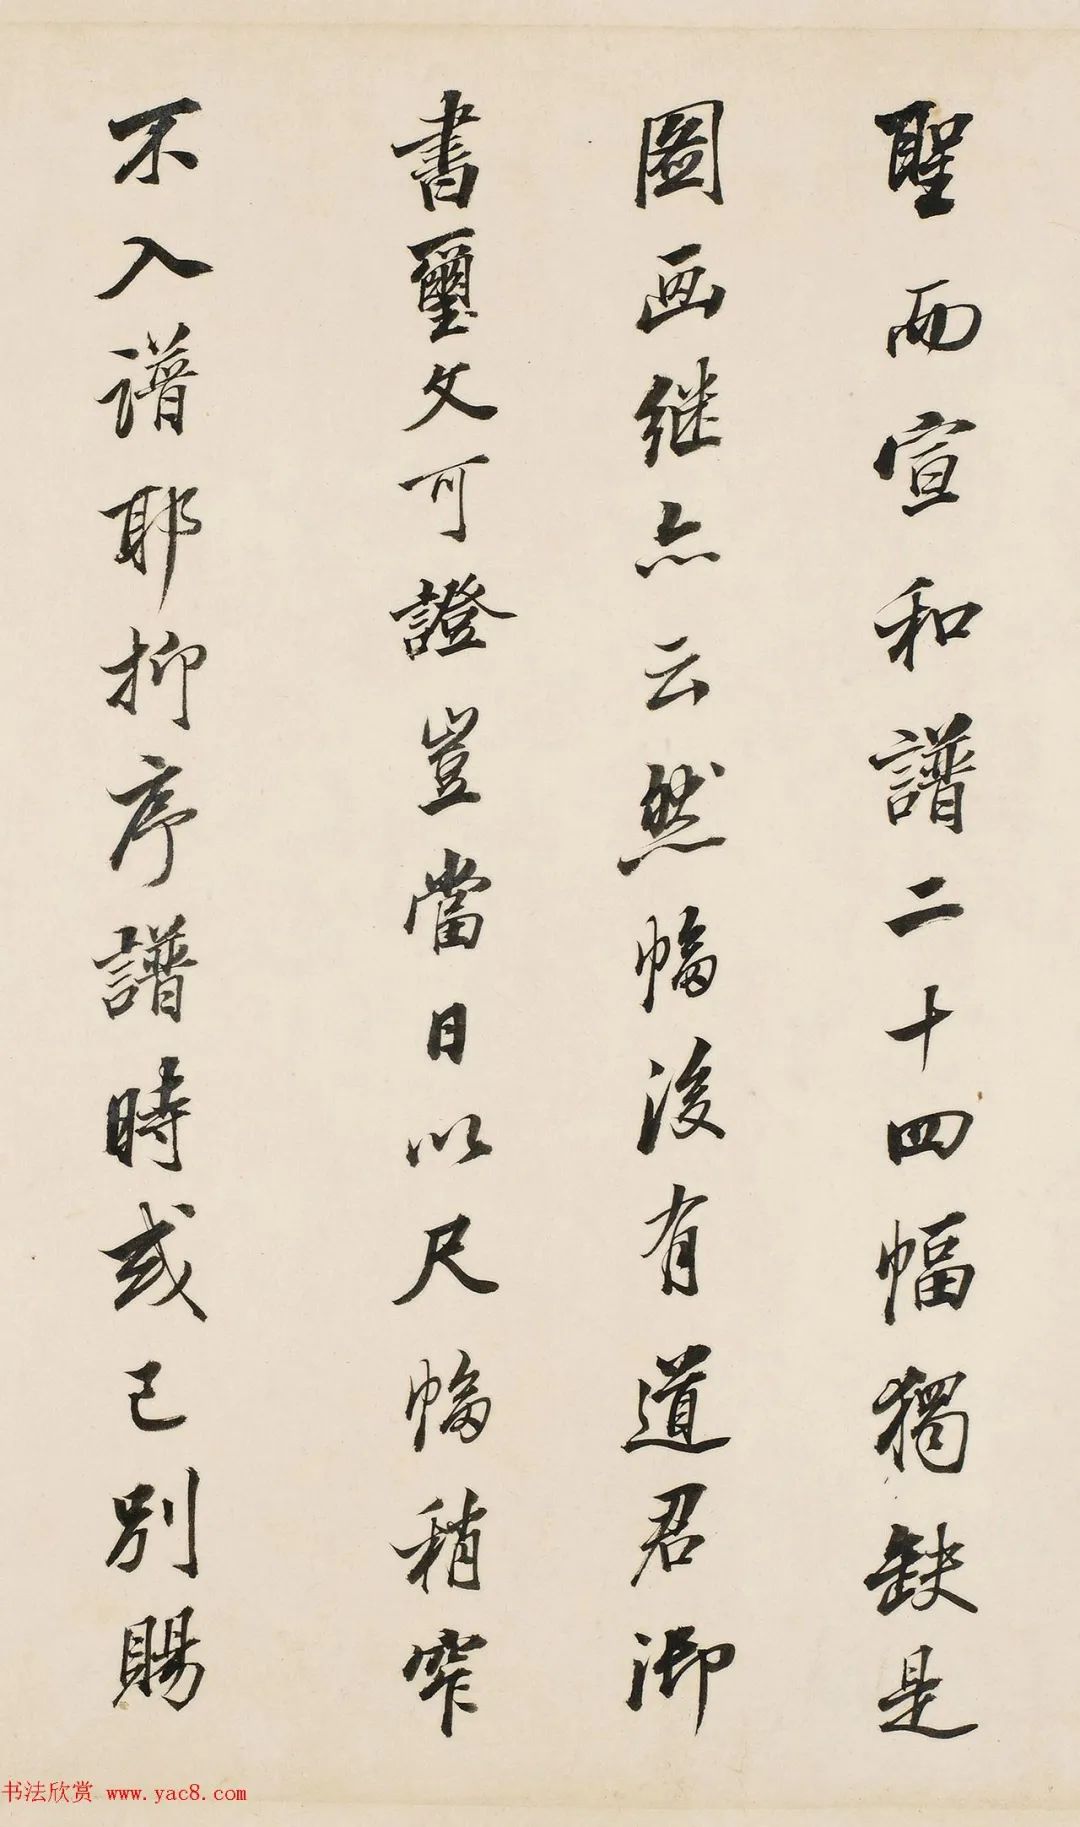 聖而宣和譜二十四幅獨缺是
圖画继亦云然幅後有道君御
書璽文可證豈當日以尺幅稍窄
不入譜耶抑序譜時或已別賜
书法欣赏 www.yac8.com